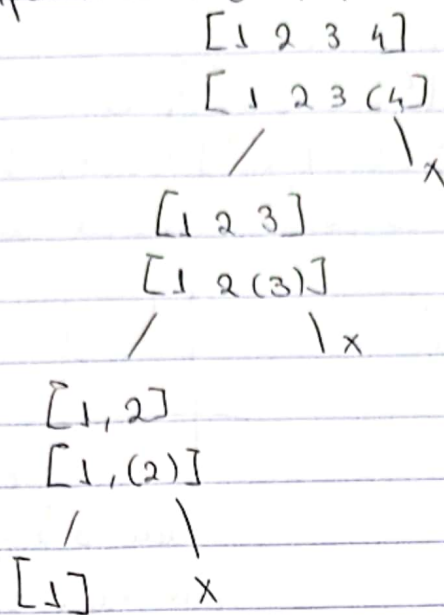 [1 2 3 4]
[1 2 3 (4]
x
[1 2 3]
[1 2 (3)]
x
[1, 2]
[1, (2)]
[1] x